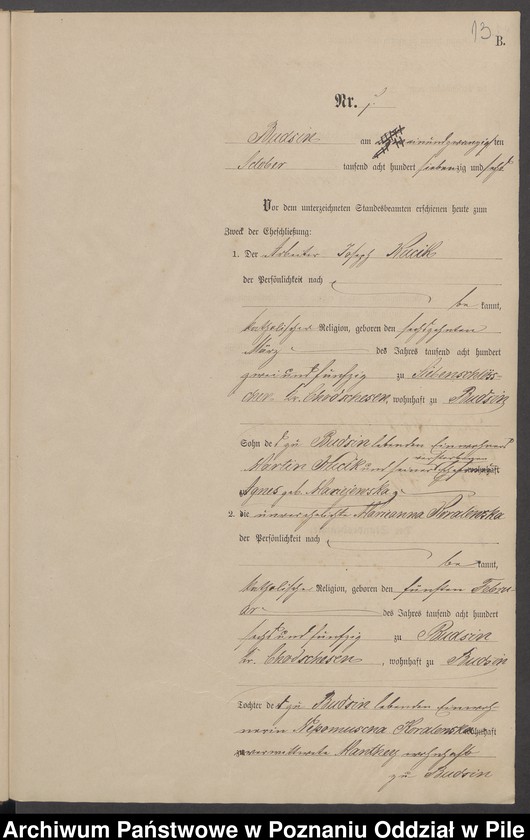 13
B.
Nr. 7.
Budsin am einundzwanzigsten
October tausend acht hundert siebenzig und sechs
Vor dem unterzeichneten Standesbeamten erschienen heute zum
Zweck der Eheschließung:
1. Der Arbeiter Joseph Kucik
der Persönlichkeit nach
be kannt,
katholischer Religion, geboren den sechszehnten
März des Jahres tausend acht hundert
zwei und fünfzig zu
Kr. Chodschesen, wohnhaft zu Budsin
Sohn des zu Budsin lebenden Einwohners
Martin Kucik und seiner verstorbenen Ehefrau
Agnes geb.
2. die unverehelichte Marianna Koralewska
der Persönlichkeit nach
be kannt,
katholische Religion, geboren den fünften Febru
ar des Jahres tausend acht hundert
sechs und fünfzig zu Budsin
Kr. Chodschesen, wohnhaft zu Budsin
Tochter der zu Budsin lebenden Einwoh-
nerin Nepomucena Koralewska
verwittwete Manthey wohnhaft
zu Budsin
Archiwum Państwowe w Poznaniu Oddział w Pile